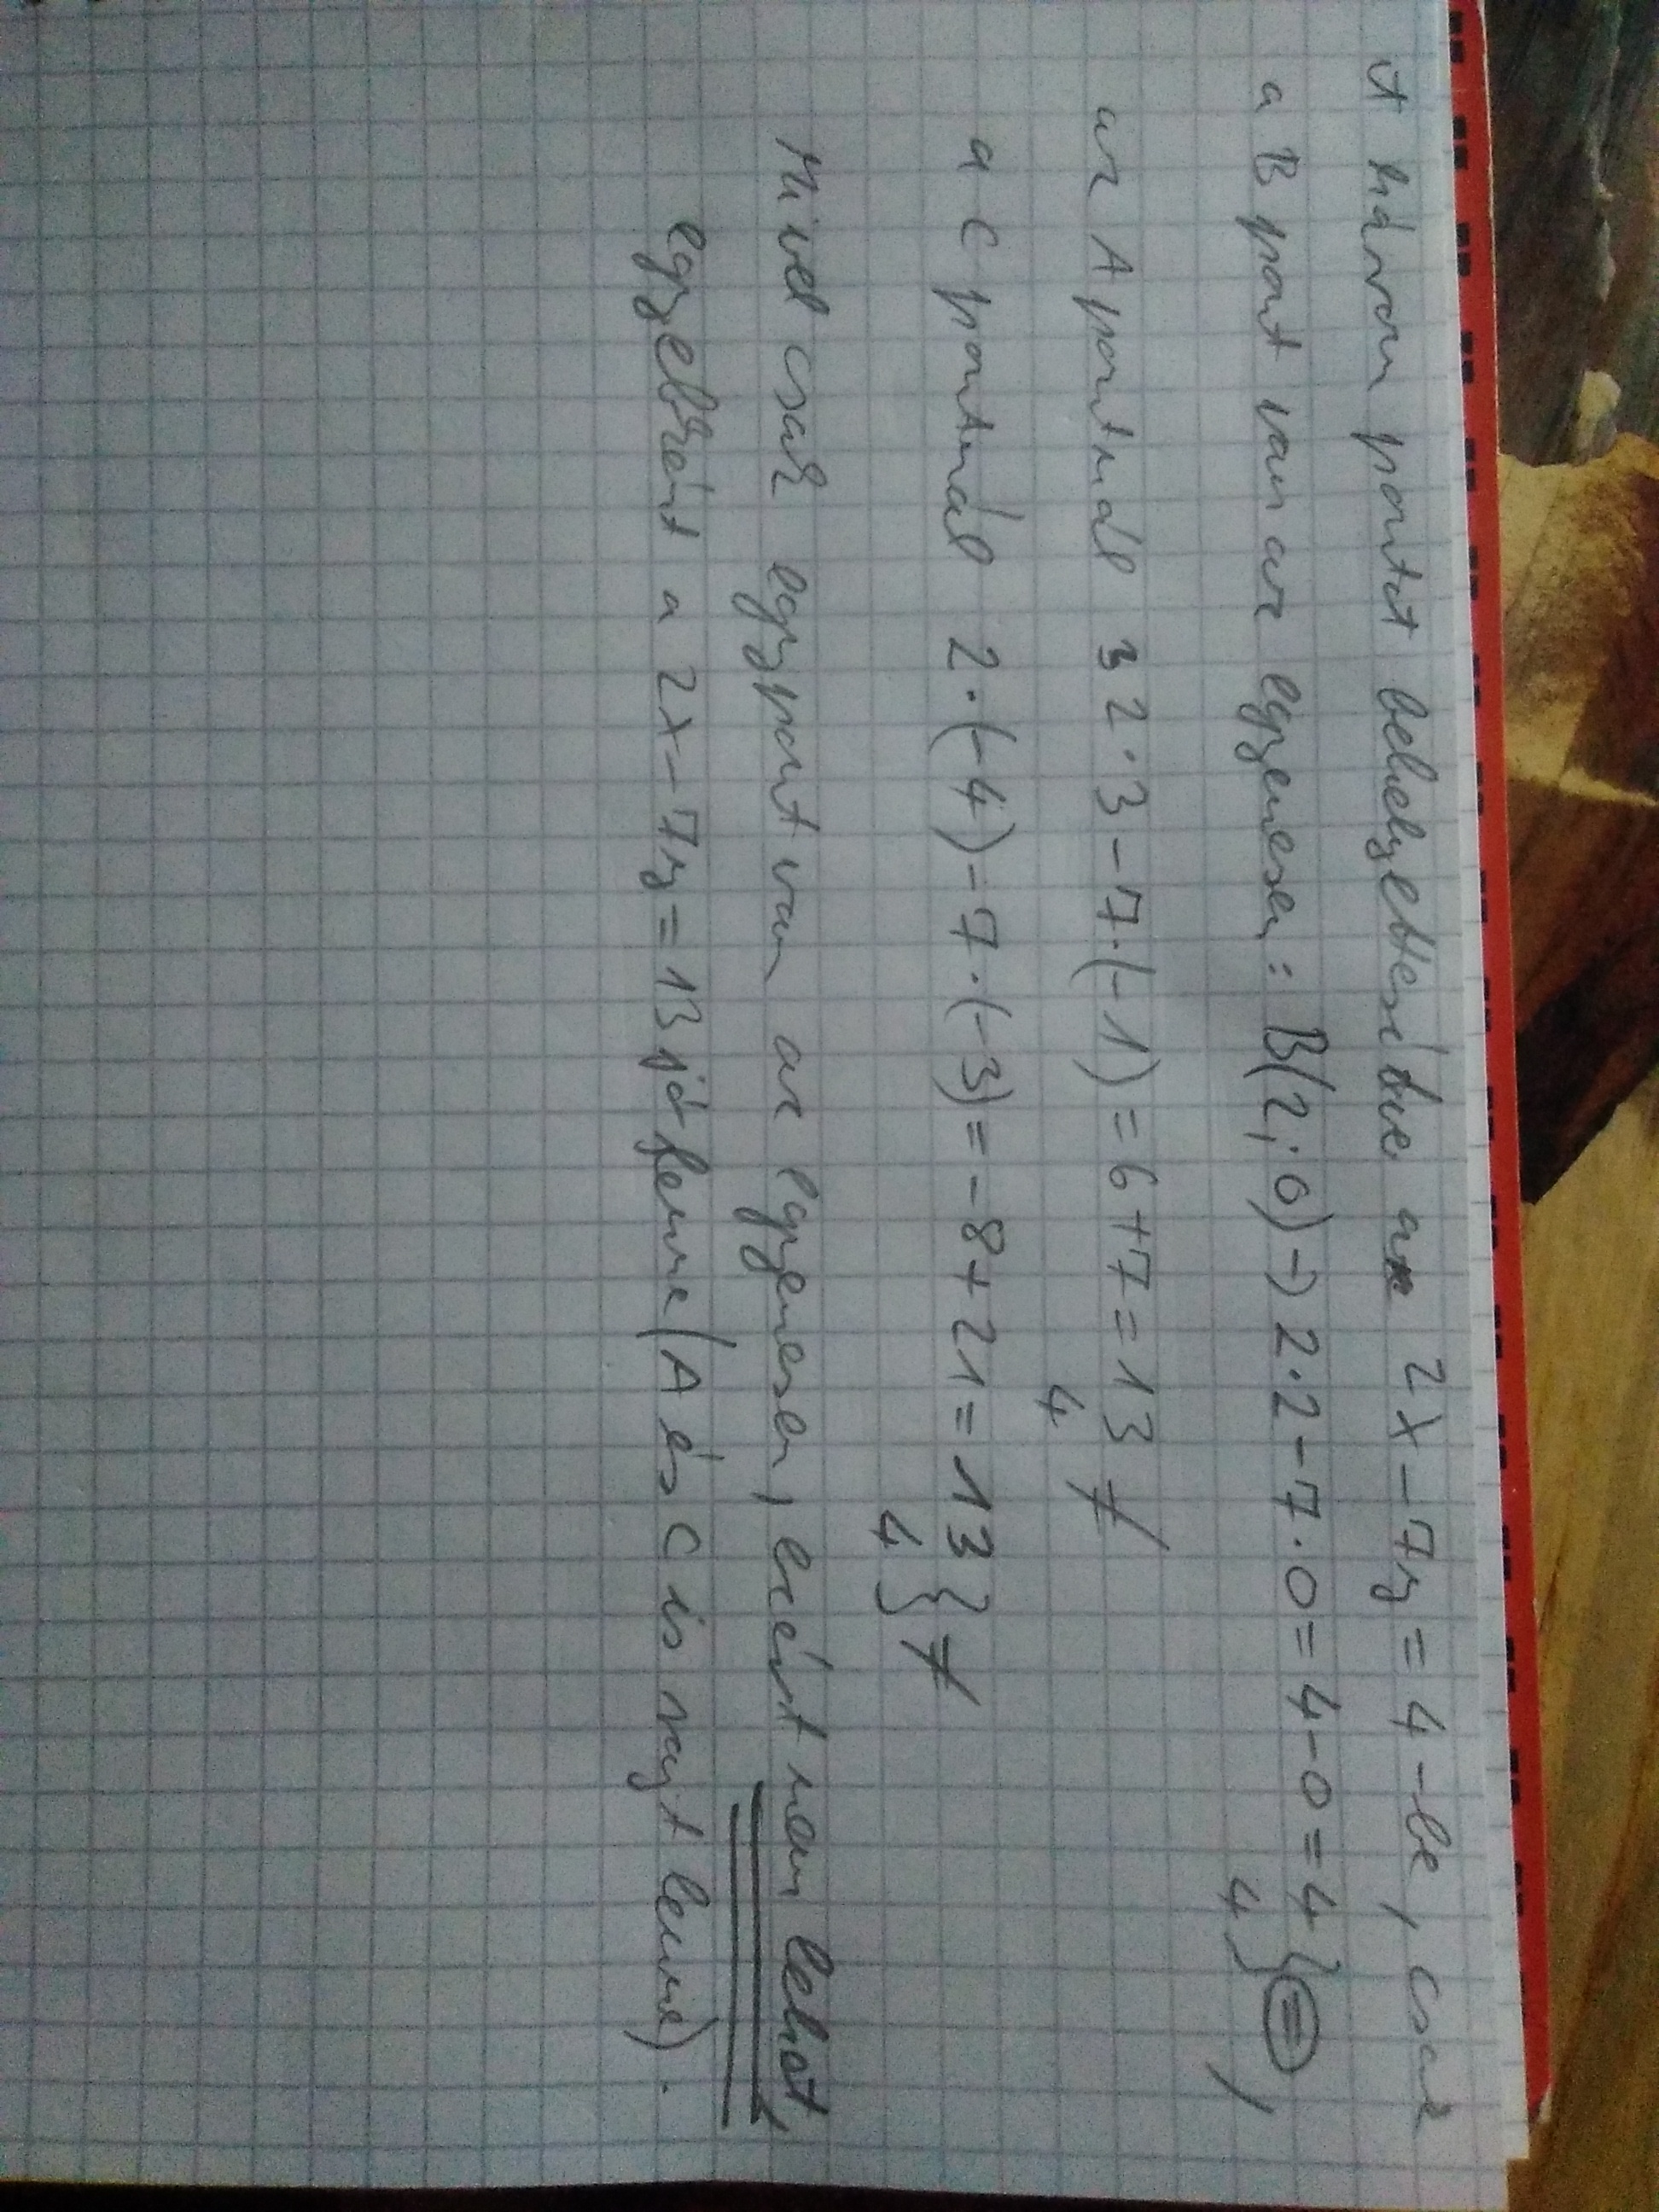 A három pontot behelyettesítve a 2x-7y=4-be, csak
a B pont van az egyenesen: B(2;0) -> 2·2-7·0=4-0=4 } =,
4
az A pontnál 3 2·3-7·(-1)=6+7=13 ≠
4
a C pontnál 2·(-4)-7·(-3)=-8+21=13 } ≠
4
Mivel csak egy pont van az egyenesen, ezért nem lehet,
egyébként a 2x-7y=13 jó lenne (A és C is rajt lenne).